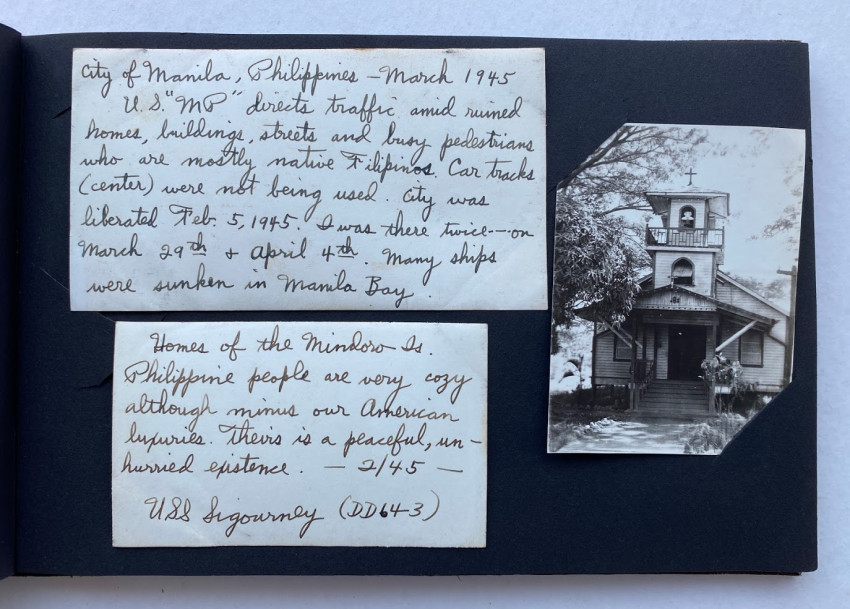 City of Manila, Philippines – March 1945
U.S. "MP" directs traffic amid ruined
homes, buildings, streets and busy pedestrians
who are mostly native Filipinos. Car tracks
(center) were not being used. City was
liberated Feb. 5, 1945. I was there twice -- on
March 29th + April 4th. Many ships
were sunken in Manila Bay.
Homes of the Mindoro Is.
Philippine people are very cozy
although minus our American
luxuries. Theirs is a peaceful, un-
hurried existence. — 2/45 —
USS Sigourney (DD643)